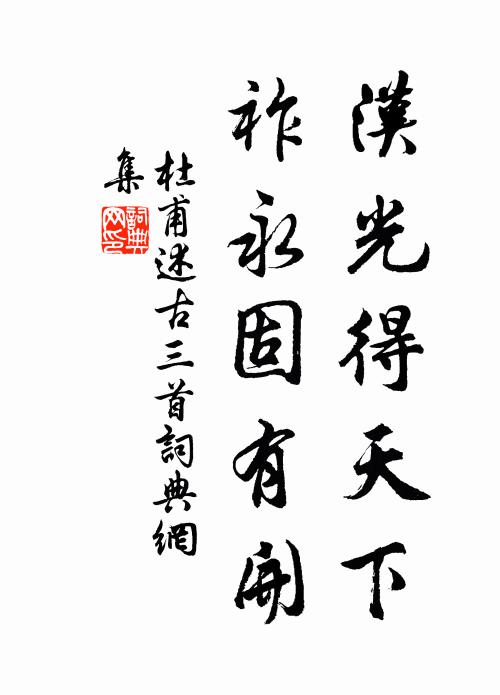 漢光得天下
祚永固有開
杜甫述古三首詞典網
集
詞典
网印